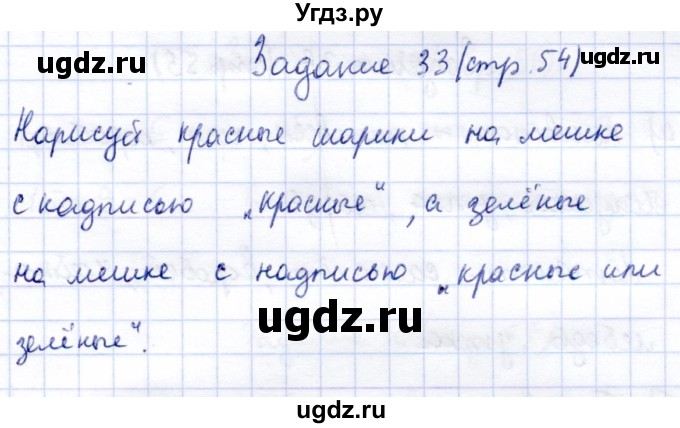 Угдз.ру
ugdz.ru Задание 33 (стр. 54) ugdz.ru
Нарисуй красные шарики на мешке
с надписью „красные“, а зелёные
на мешке с надписью „красные или
ugdz.ru
зелёные“.
ugdz.ru